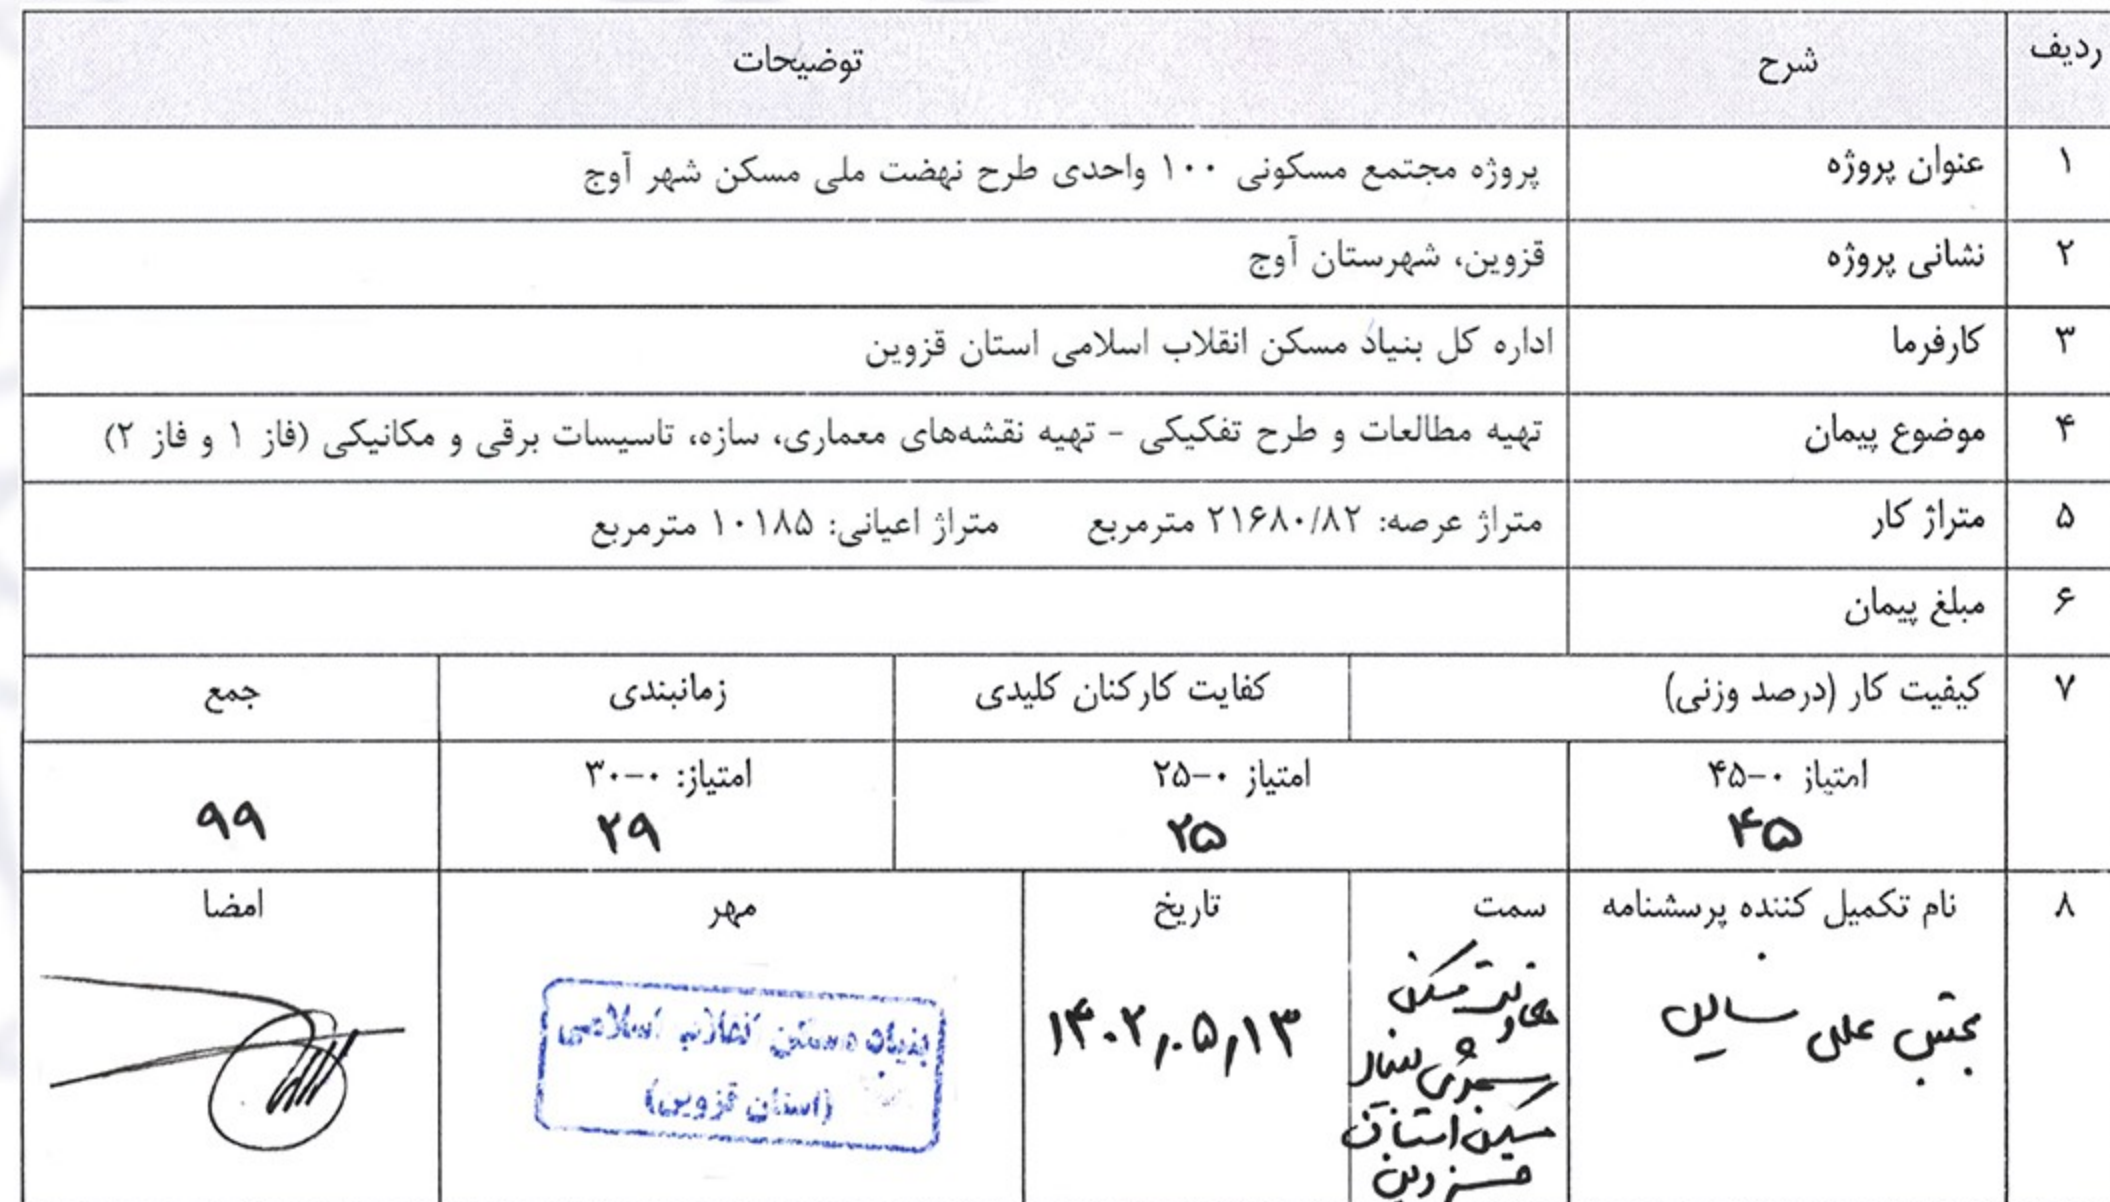 ردیف شرح توضیحات
۱ عنوان پروژه پروژه مجتمع مسکونی ۱۰۰ واحدی طرح نهضت ملی مسکن شهر آوج
۲ نشانی پروژه قزوین، شهرستان آوج
۳ کارفرما اداره کل بنیاد مسکن انقلاب اسلامی استان قزوین
۴ موضوع پیمان تهیه مطالعات و طرح تفکیکی - تهیه نقشه‌های معماری، سازه، تاسیسات برقی و مکانیکی (فاز ۱ و فاز ۲)
۵ متراژ کار متراژ عرصه: ۲۱۶۸۰/۸۲ مترمربع متراژ اعیانی: ۱۰۱۸۵ مترمربع
۶ مبلغ پیمان
۷ کیفیت کار (درصد وزنی) کفایت کارکنان کلیدی زمانبندی جمع
امتیاز ۰-۴۵ امتیاز ۰-۲۵ امتیاز: ۰-۳۰
۴۵ ۲۵ ۲۹ ۹۹
۸ نام تکمیل کننده پرسشنامه سمت تاریخ مهر امضا
مجتبی علی
معاونت مسکن
شهری بنیاد
مسکن استان
قزوین
۱۴۰۲,۰۵,۱۳
بنیاد مسکن انقلاب اسلامی
(استان قزوین)